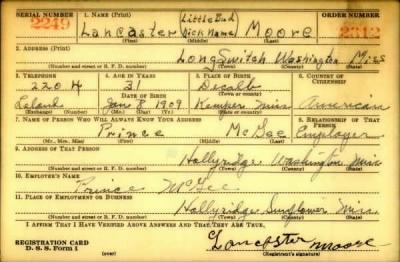 SERIAL NUMBER 1. NAME (Print) ORDER NUMBER
2249 Lancaster (Little Bud Nick Name) Moore 2313
(First) (Middle) (Last)
2. ADDRESS (Print)
Longswitch Washington Miss
(Number and street or R. F. D. number) (Town) (County) (State)
3. TELEPHONE 4. AGE IN YEARS 5. PLACE OF BIRTH 6. COUNTRY OF CITIZENSHIP
220 4 31 Decalb
(Town or county)
Leland Jan 8 1909 Kemper Miss American
(Exchange) (Number) (Mo.) (Day) (Yr.) (State or country)
7. NAME OF PERSON WHO WILL ALWAYS KNOW YOUR ADDRESS 8. RELATIONSHIP OF THAT PERSON
Prince McGee Employer
(Mr., Mrs., Miss) (First) (Middle) (Last)
9. ADDRESS OF THAT PERSON
Hollyridge Washington Miss
(Number and street or R. F. D. number) (Town) (County) (State)
10. EMPLOYER'S NAME
Prince McGee
11. PLACE OF EMPLOYMENT OR BUSINESS
Hollyridge Sunflower Miss
(Number and street or R. F. D. number) (Town) (County) (State)
I AFFIRM THAT I HAVE VERIFIED ABOVE ANSWERS AND THAT THEY ARE TRUE.
REGISTRATION CARD
D. S. S. Form 1 Lancaster Moore
(over) (Registrant's signature)